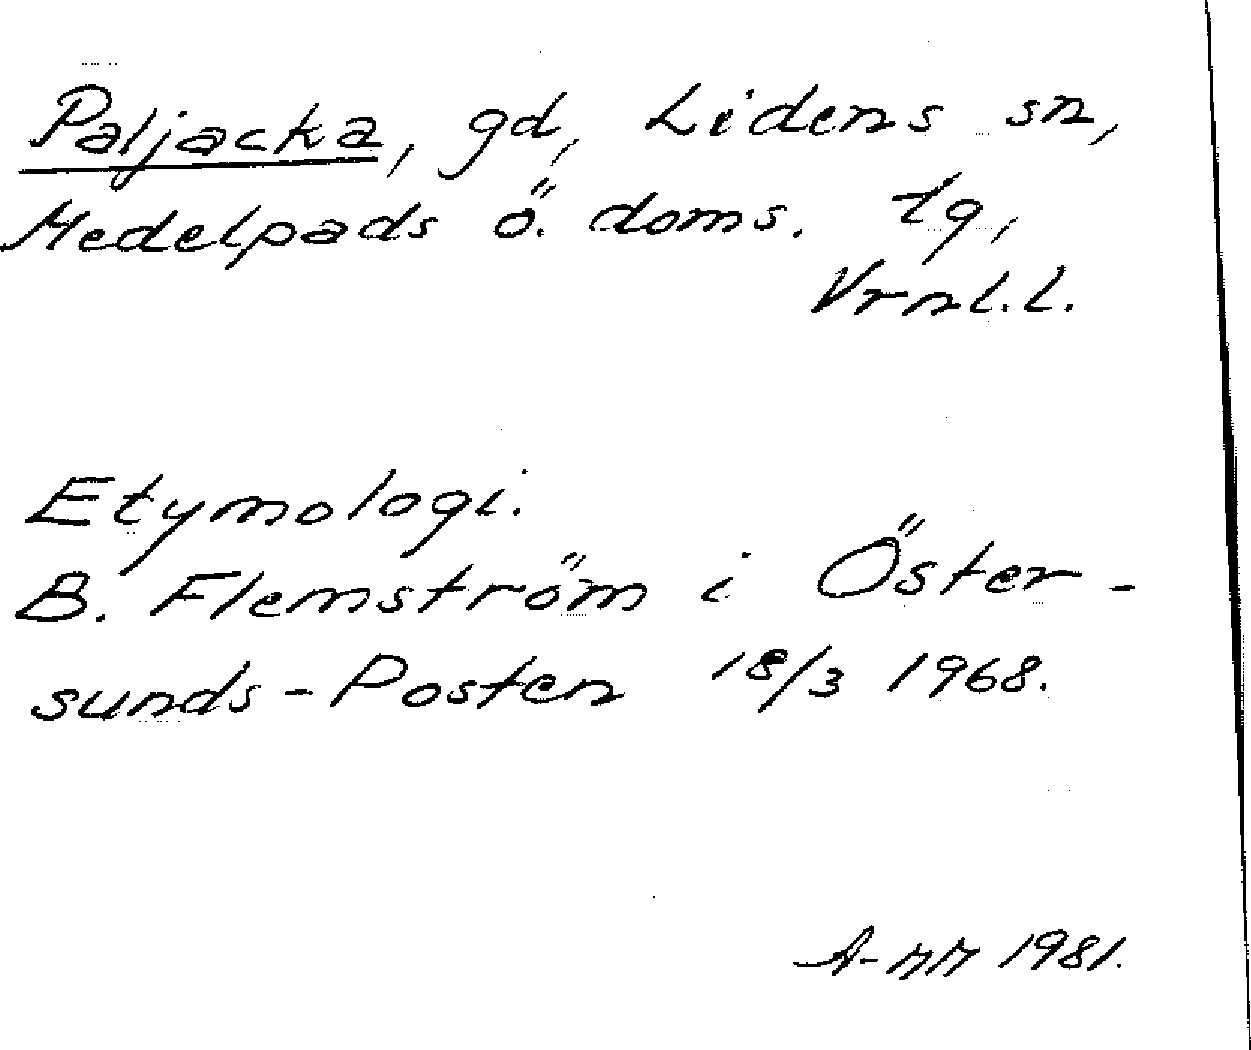 Paljacka, gd, Lidens sn,
Medelpads ö. doms. tg,
Vrnl.l.
Etymologi.
B. Flemström i Öster-
sunds-Posten 18/3 1968.
A-MM 1981.